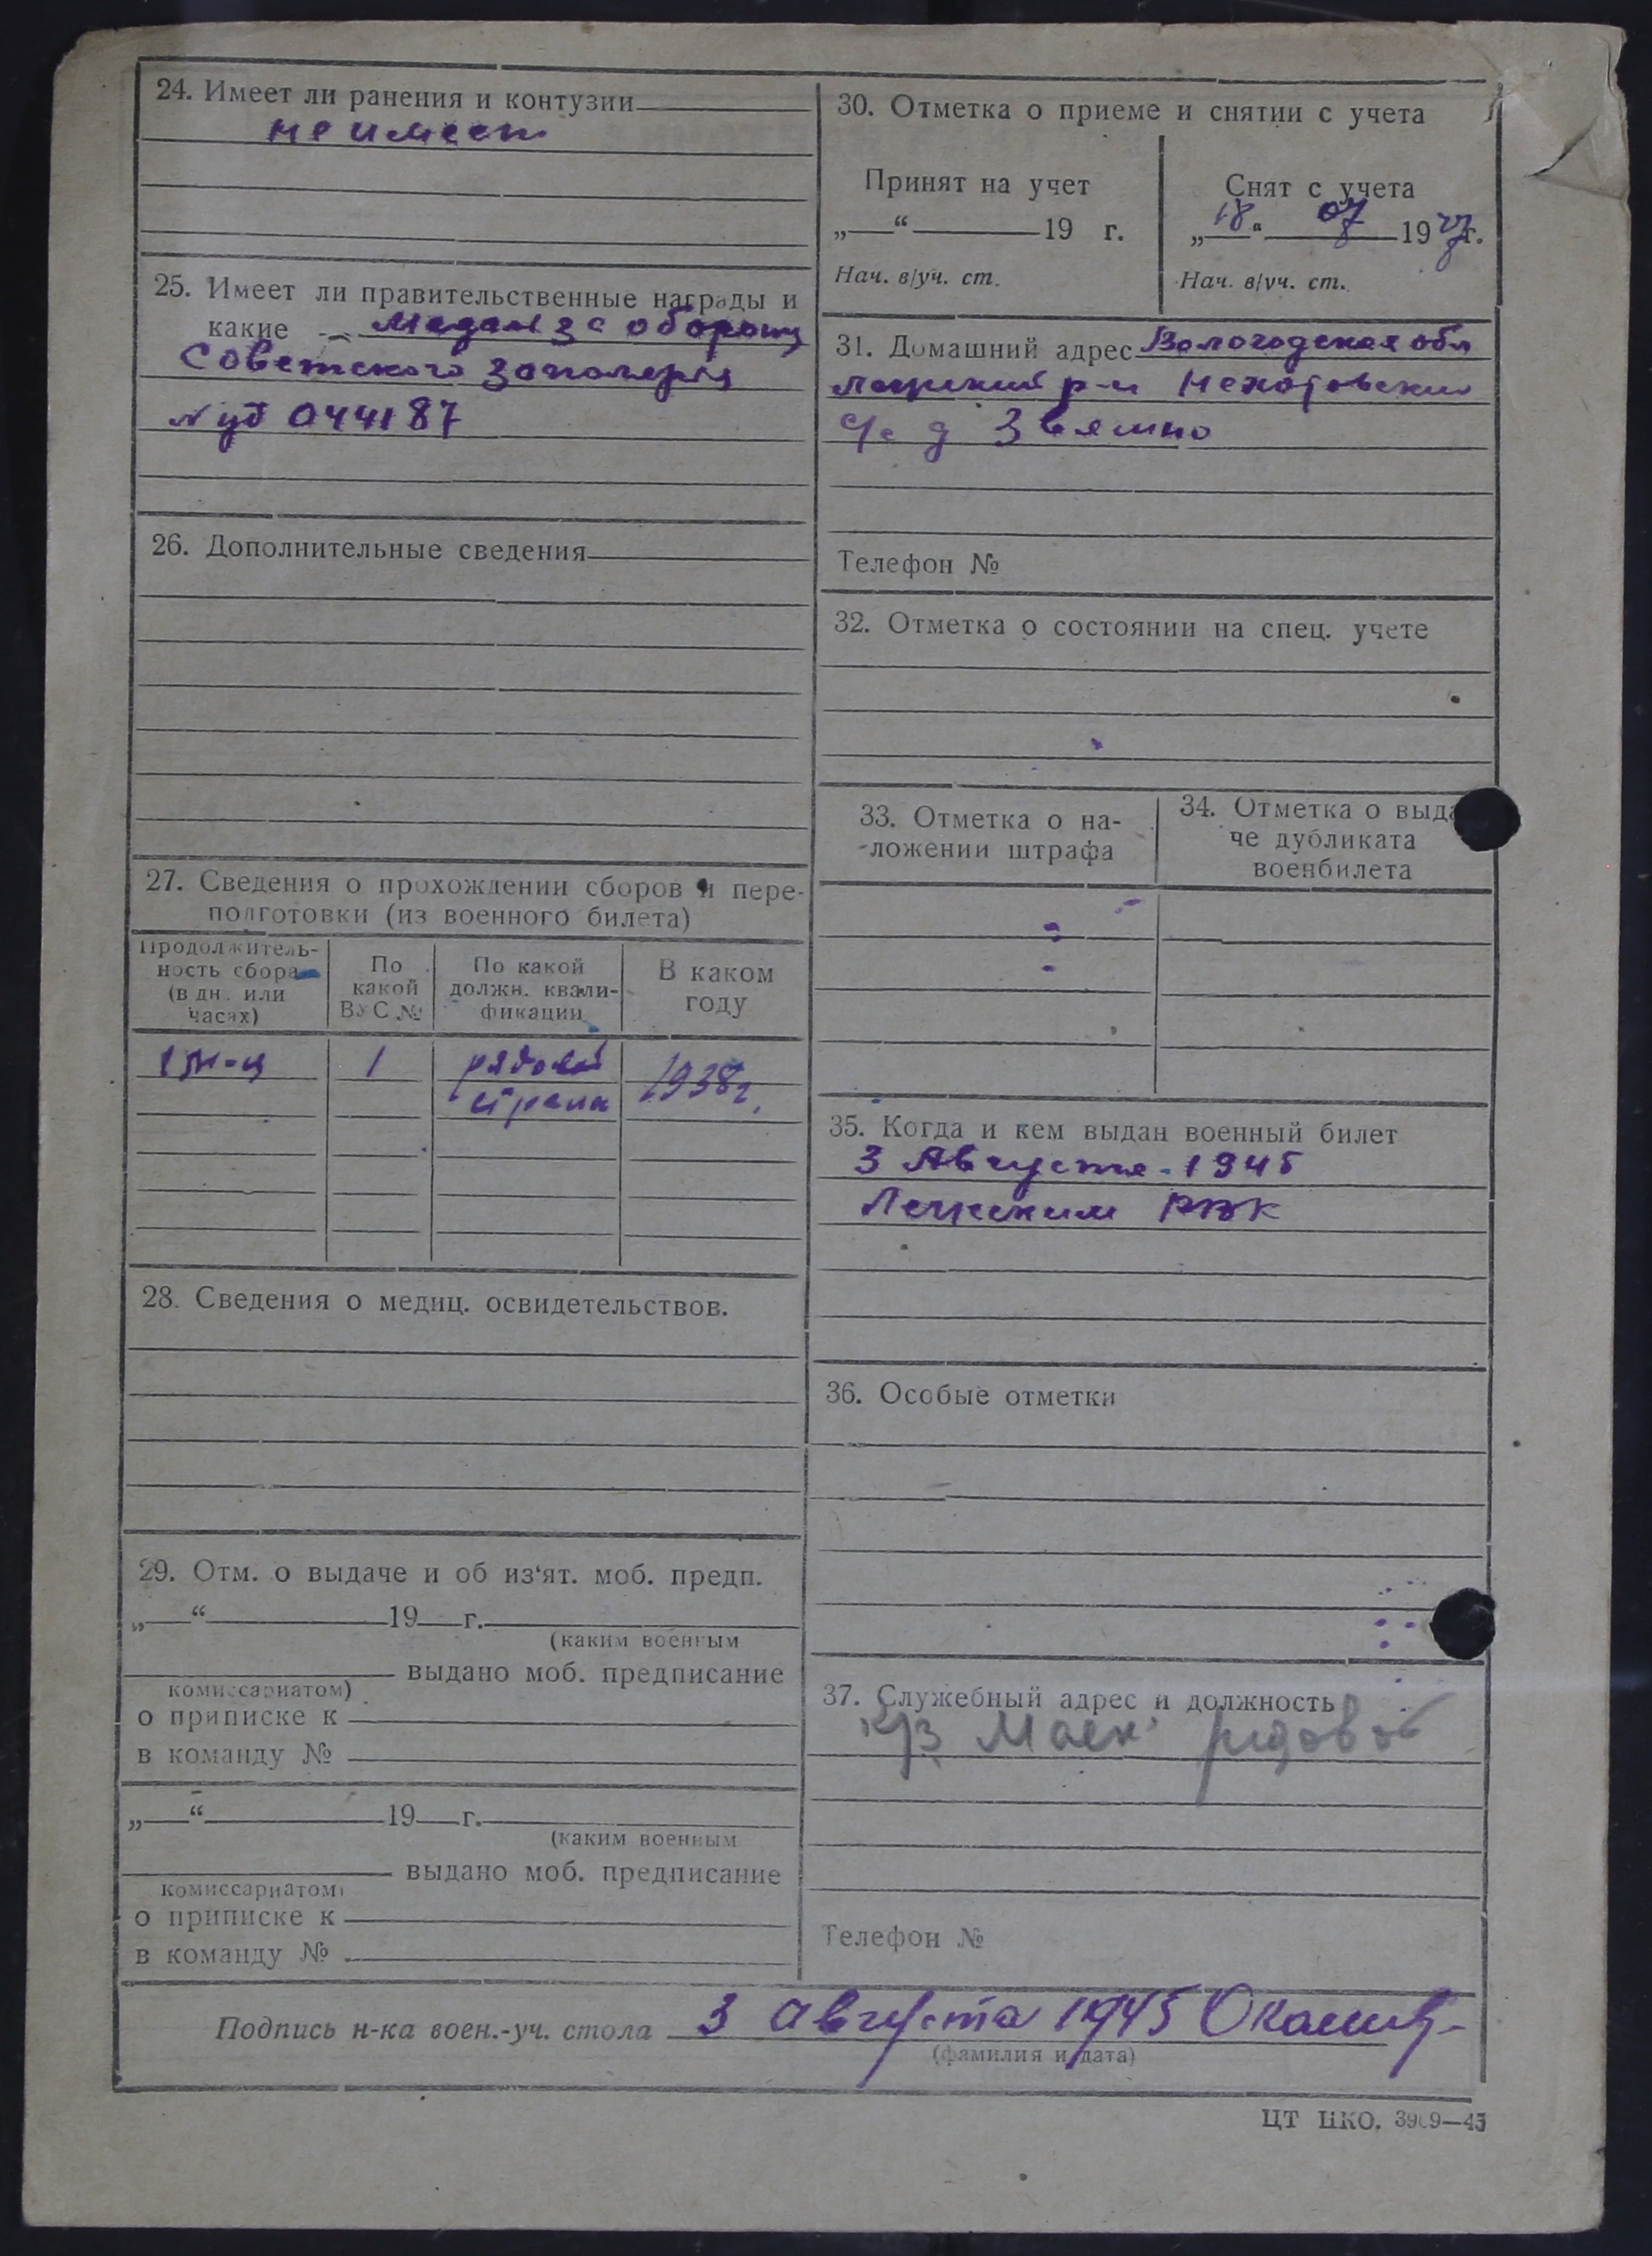 24. Имеет ли ранения и контузии
не имеет
25. Имеет ли правительственные награды и
какие - Медаль за оборону
Советского Заполярья
044187
26. Дополнительные сведения
27. Сведения о прохождении сборов и пере-
подготовки (из военного билета)
Продолжитель-
ность сбора
(в дн. или
часах)
По
какой
ВУС №
По какой
должн. квали-
фикации
В каком
году
1 м-ц
1
рядовой
стрелк
1938г.
28. Сведения о медиц. освидетельствов.
29. Отм. о выдаче и об из‘ят. моб. предп.
„ “ 19 г.
(каким военным
выдано моб. предписание
комиссариатом)
о приписке к
в команду №
„ “ 19 г.
(каким военным
выдано моб. предписание
комиссариатом)
о приписке к
в команду №
30. Отметка о приеме и снятии с учета
Принят на учет
„ “ 19 г.
Нач. в/уч. ст.
Снят с учета
„18“ 07 1947г.
Нач. в/уч. ст.
31. Домашний адрес Вологодская обл
р-н
с/с д
Телефон №
32. Отметка о состоянии на спец. учете
33. Отметка о на-
ложении штрафа
34. Отметка о выда-
че дубликата
военбилета
35. Когда и кем выдан военный билет
3 Августа - 1945
РВК
36. Особые отметки
37. Служебный адрес и должность
к/з Маяк рядовой
Телефон №
Подпись н-ка воен.-уч. стола 3 августа 1945
(фамилия и дата)
ЦТ НКО. 3969—45